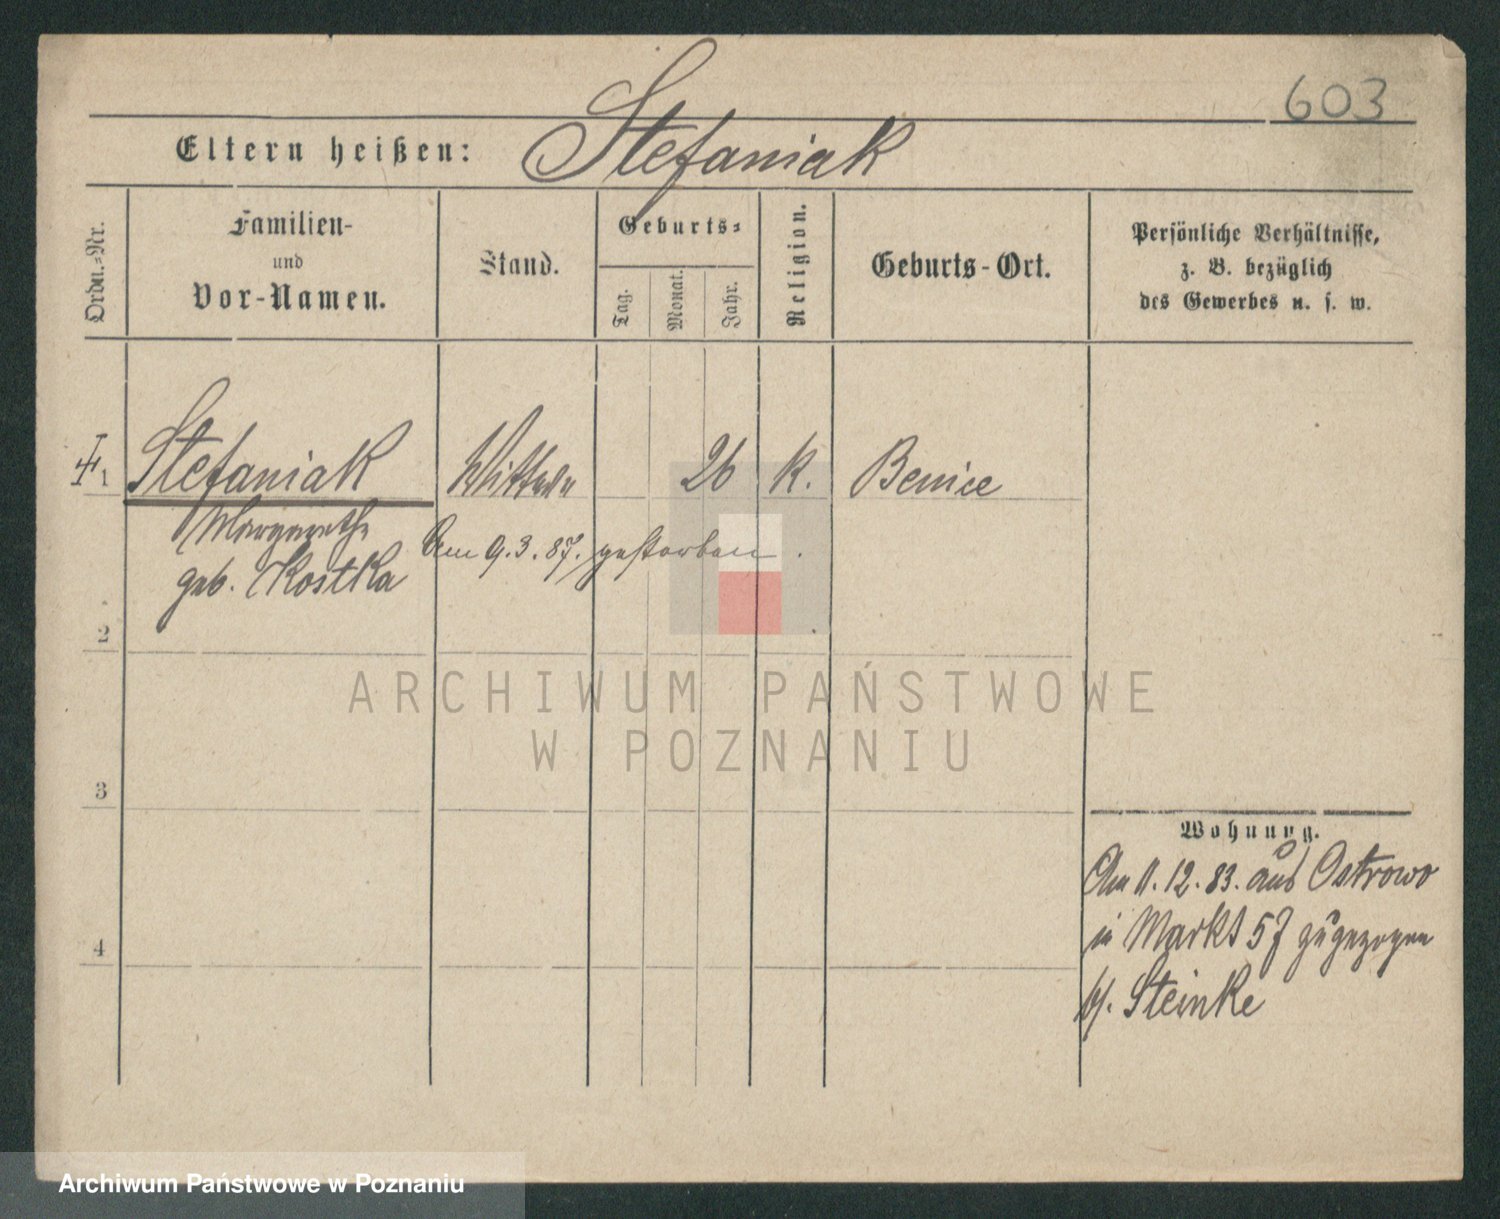 603
Eltern heißen: Stefaniak
Ordn.=Nr.
Familien-
und
Vor-Namen.
Stand.
Geburts=
Tag.
Monat.
Jahr.
Religion.
Geburts-Ort.
Persönliche Verhältnisse,
z. B. bezüglich
des Gewerbes u. s. w.
1 Stefaniak Wittwe 26 K. Benice
Margarethe
geb. Kostka
Am 9.3.87. gestorben.
2
3
4
Wohnung.
Am 11.12.83. aus Ostrowo
in Markt 57 zugezogen
b/. Steinke
ARCHIWUM PAŃSTWOWE
W POZNANIU
Archiwum Państwowe w Poznaniu